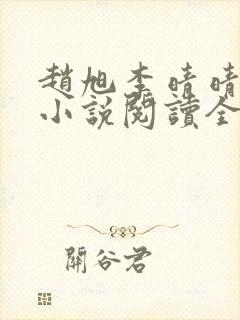 趙旭李晴晴
小說閱讀全
關谷君